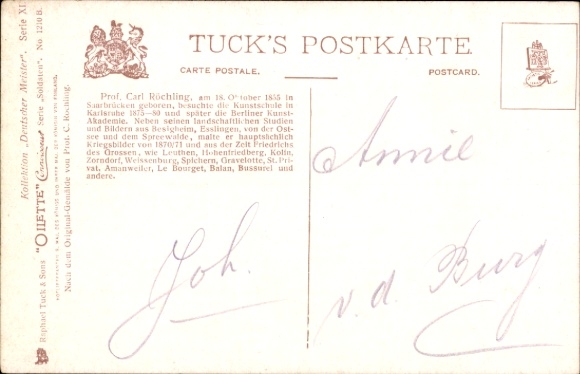 TUCK'S POSTKARTE.
CARTE POSTALE.
POSTCARD.
Prof. Carl Röchling, am 18. Oktober 1855 in
Saarbrücken geboren, besuchte die Kunstschule in
Karlsruhe 1875—80 und später die Berliner Kunst-
Akademie. Neben seinen landschaftlichen Studien
und Bildern aus Besigheim, Esslingen, von der Ost-
see und dem Spreewalde, malte er hauptsächlich
Kriegsbilder von 1870/71 und aus der Zeit Friedrichs
des Grossen, wie Leuthen, Hohenfriedberg, Kolin,
Zorndorf, Weissenburg, Spichern, Gravelotte, St. Pri-
vat, Amanweiler, Le Bourget, Balan, Bussurel und
andere.
Annie
v. d. Burg
Joh.
Kollektion „Deutscher Meister". Serie XI
Raphael Tuck & Sons "OILETTE" Connoisseur Serie „Soldaten". No 1210 B.
Nach dem Original-Gemälde von Prof. C. Röchling.